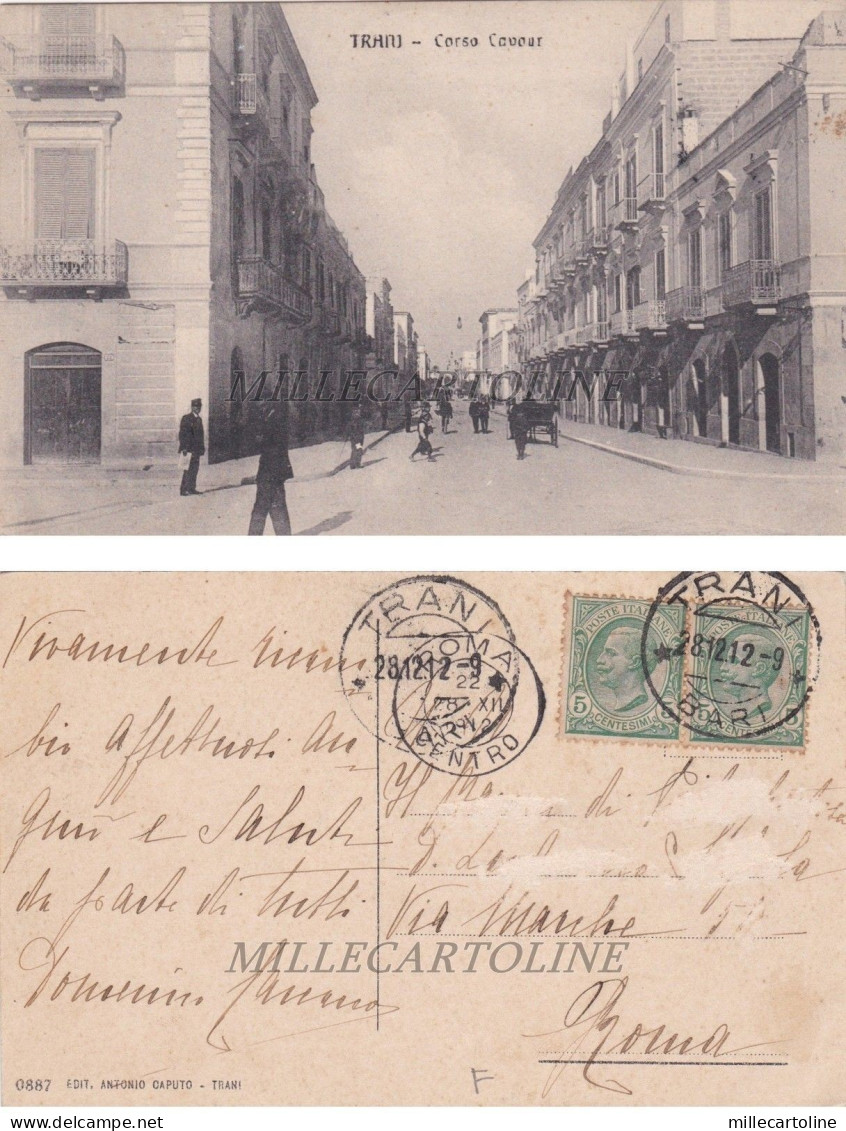 TRANI - Corso Cavour
MILLECARTOLINE
TRANI
28.12.12-9
BARI
ROMA
22
28 XII
CENTRO
POSTE ITALIANE
5 CENTESIMI 5
TRANI
28.12.12-9
BARI
Vivamente ricam
bio affettuosi au
guri e saluti
da parte di tutti
Domenico
di
D.
Via Marche
Roma
MILLECARTOLINE
0887 EDIT. ANTONIO CAPUTO - TRANI
F
www.delcampe.net
millecartoline